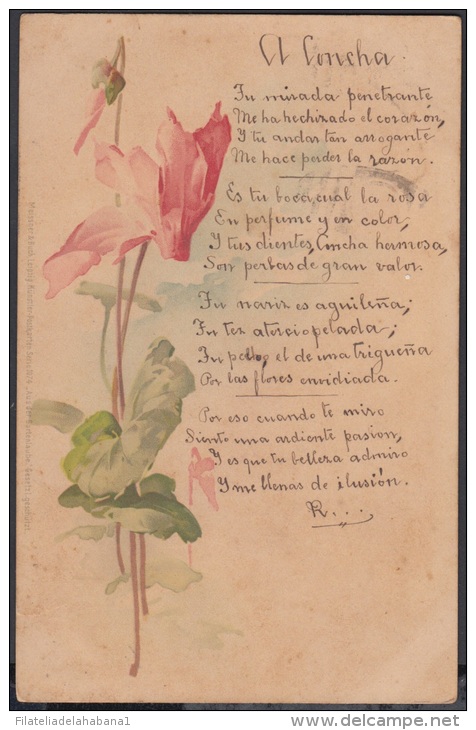 A Concha.
Tu mirada penetrante
Me ha hechizado el corazón,
Y tu andar tan arrogante
Me hace perder la razón.
Es tu boca, cual la rosa
En perfume y en color,
Y tus dientes, Concha hermosa,
Son perlas de gran valor.
Tu nariz es aguileña;
Tu tez aterciopelada;
Tu pelo, el de una trigueña
Por las flores envidiada.
Por eso cuando te miro
Siento una ardiente pasion,
Y es que tu belleza admiro
Y me llenas de ilusión.
R...
© Filateliadelahabana1
delcampe.net